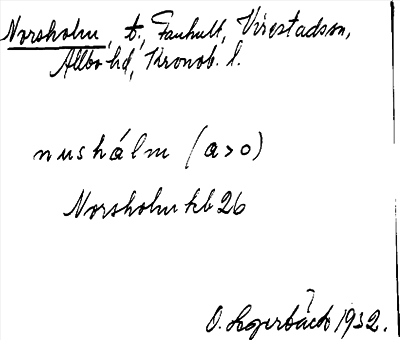 Norsholm, t., Fanhult, Virestadssn,
Allbo hd, Kronob. l.
nushálm (a>o)
Norsholm kb 26
O. 1932.